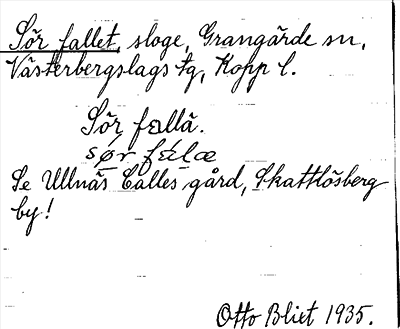 Sör fallet, sloge, Grangärde sn,
Västerbergslags tg, Kopp l.
Sör fallä.
sør fɑ́læ
Se Ullnäs Calles gård, Skattlösberg
by!
Otto Blixt 1935.